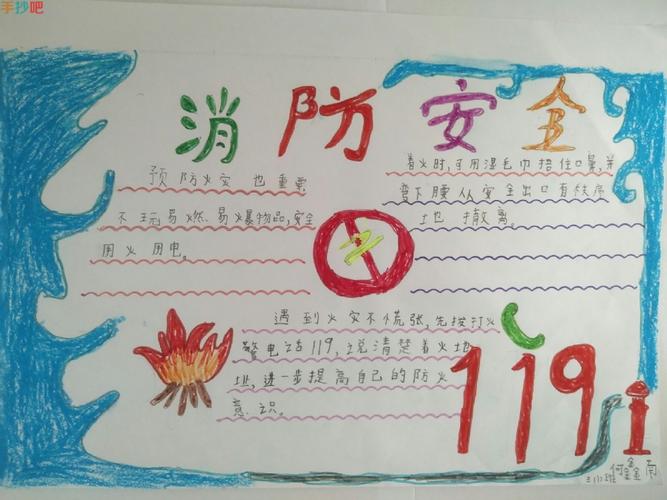 手抄吧
消防安全
预防火灾也重要
不玩易燃、易爆物品,安全
用火用电。
着火时,可用湿毛巾捂住口鼻,并
弯下腰从安全出口有秩序
地撤离。
遇到火灾不慌张,先拨打火
警电话119,说清楚着火地
址,进一步提高自己的防火
意识。
119
何鑫南